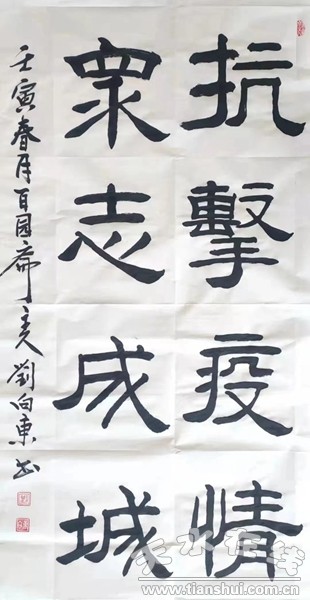 抗擊疫情
眾志成城
壬寅春月百园斋主人劉向東书
天水在线
www.tianshui.com.cn